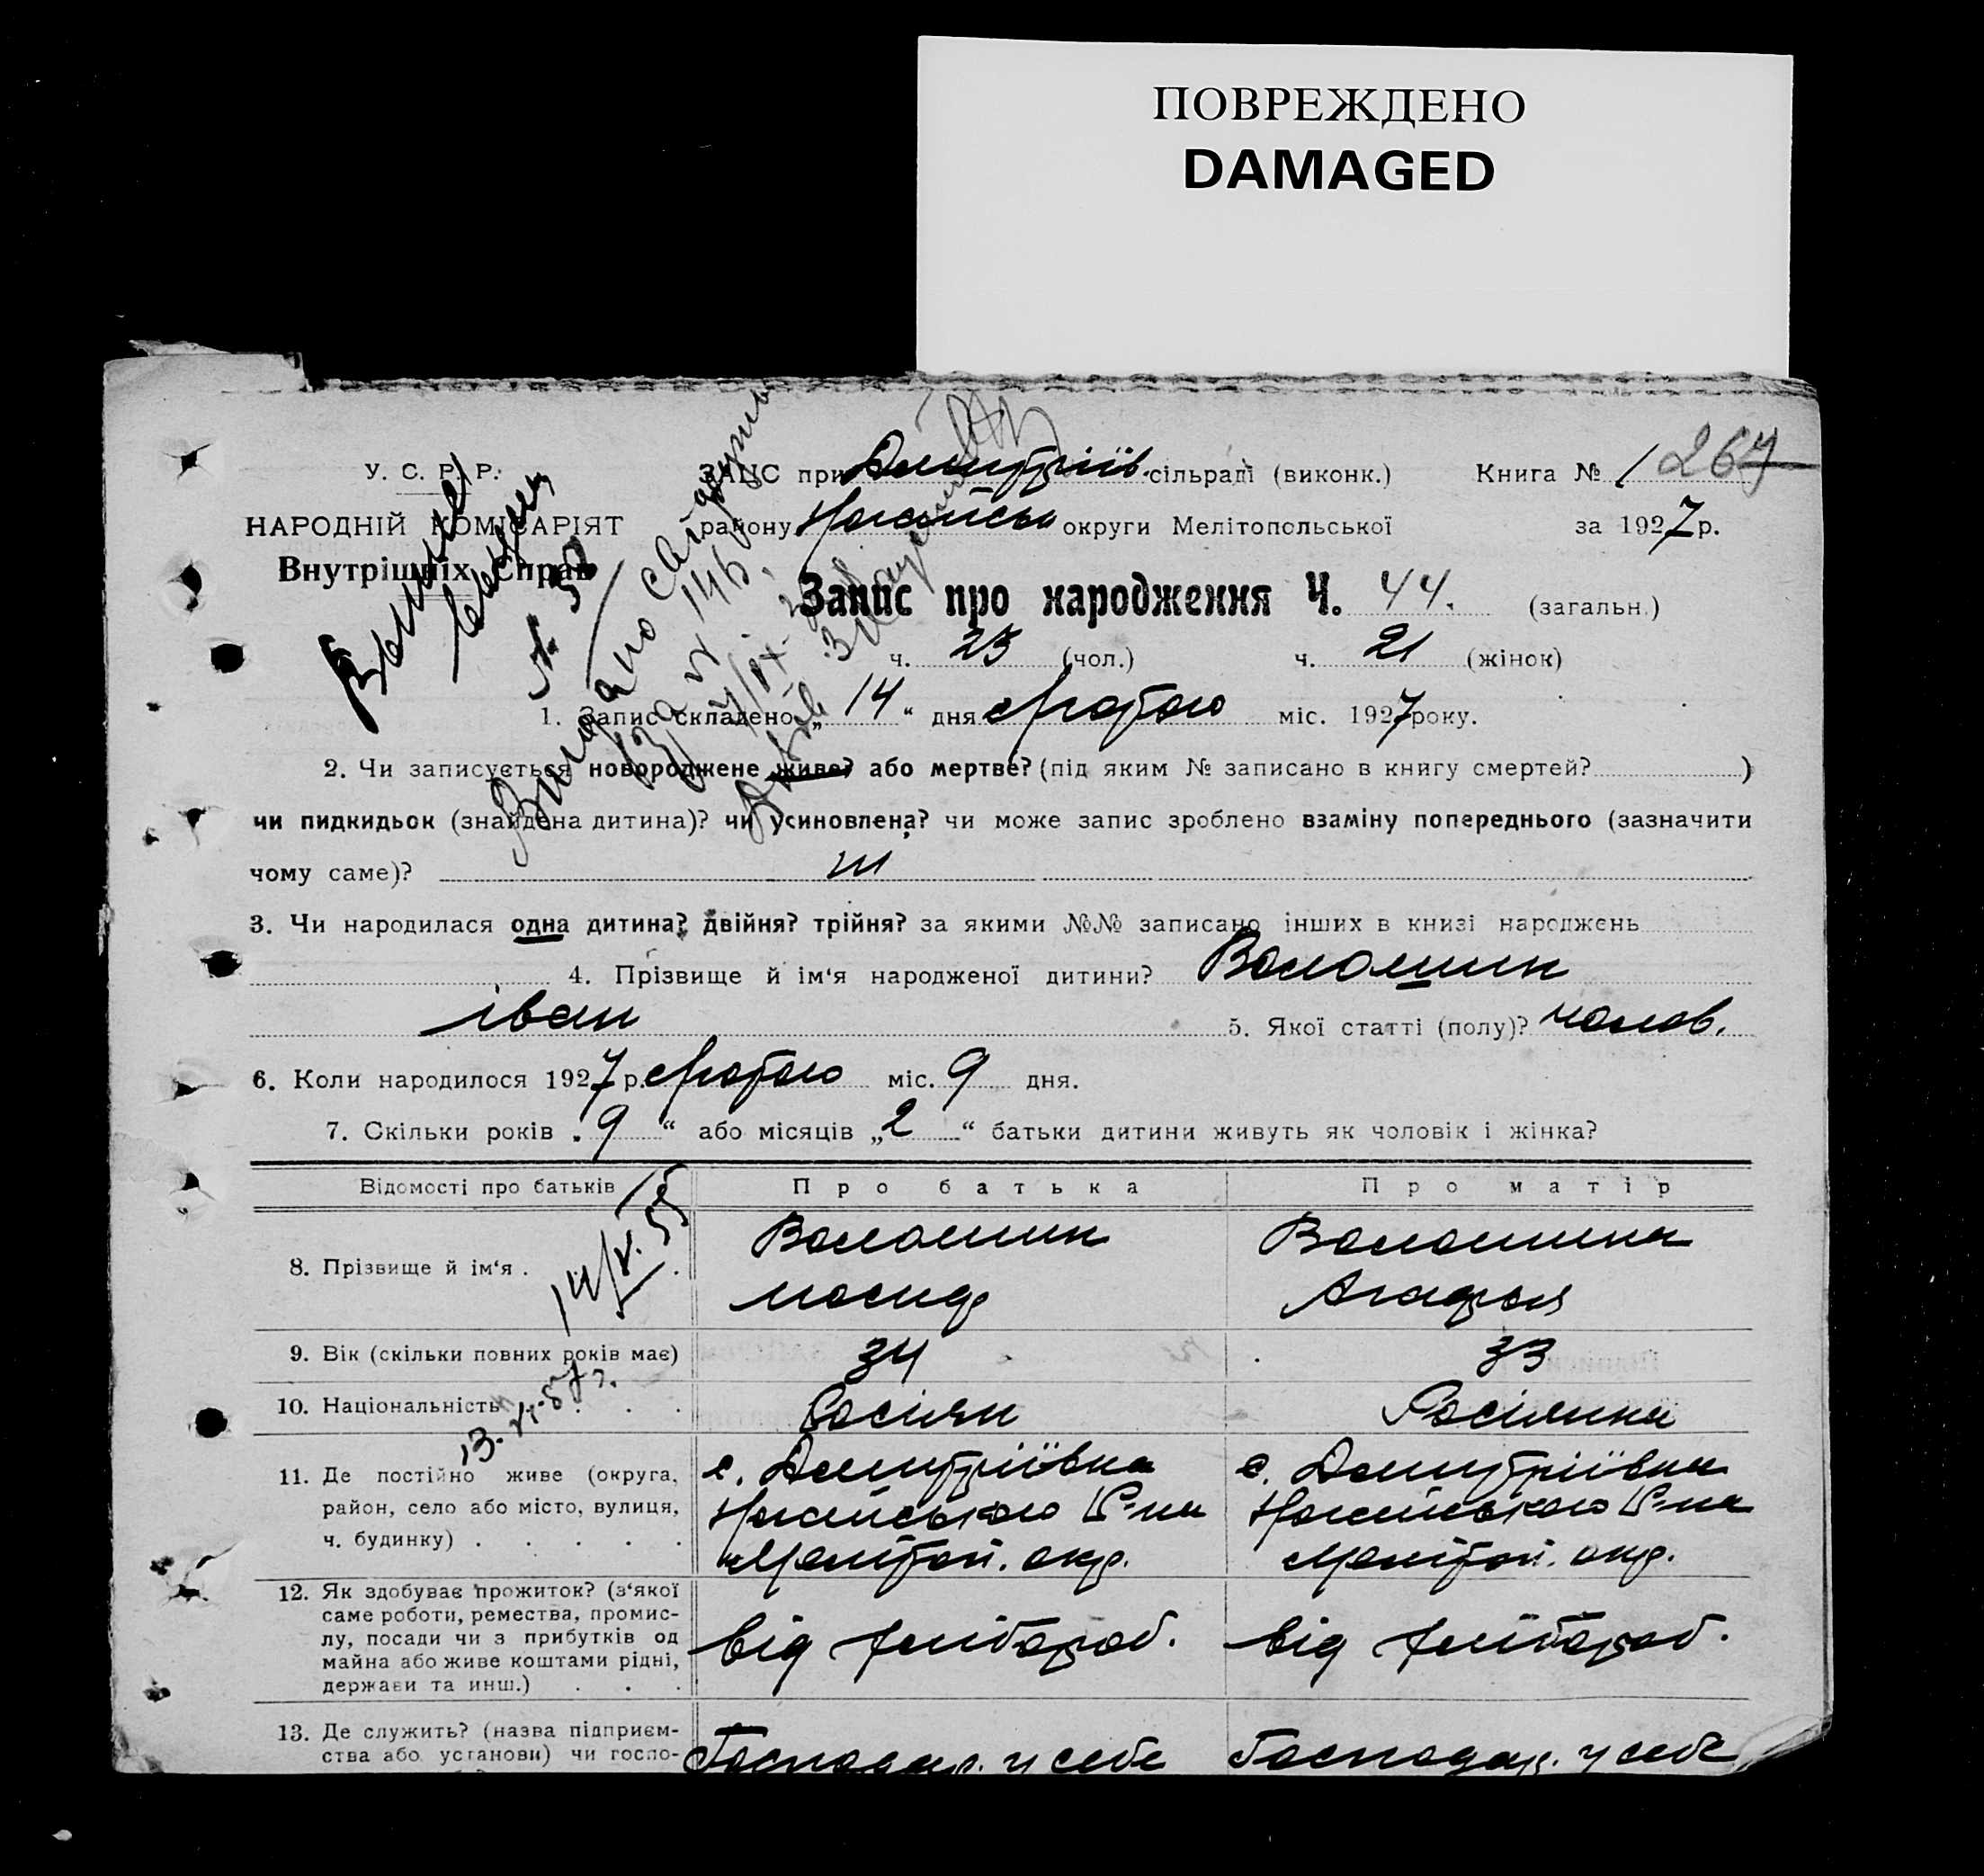 ПОВРЕЖДЕНО
DAMAGED
У. С. Р. Р.
НАРОДНІЙ КОМІСАРІЯТ
Внутрішніх Справ
ЗАГС при Дмитріїв. сільраді (виконк.) Книга № 1 267
району Ногайськ округи Мелітопольської за 1927 р.
Запис про народження Ч. 44. (загальн.)
ч. 23 (чол.) ч. 21 (жінок)
Видано свідоцтв
1. Запис складено „14“ дня Лютого міс. 1927 року.
2. Чи записується новороджене живе? або мертве? (під яким № записано в книгу смертей? )
чи пидкидьок (знайдена дитина)? чи усиновлена? чи може запис зроблено взаміну попереднього (зазначити
чому саме)?
3. Чи народилася одна дитина? двійня? трійня? за якими №№ записано інших в книзі народжень
4. Прізвище й ім'я народженої дитини? Волошин
Іван 5. Якої статті (полу)? чолов.
6. Коли народилося 1927 р. Лютого міс. 9 дня.
7. Скільки років „9“ або місяців „2“ батьки дитини живуть як чоловік і жінка?
Відомості про батьків Про батька Про матір
8. Прізвище й ім'я . Волошин Волошина
Иосиф Агафья
9. Вік (скільки повних років має) 34 33
10. Національність . . . Росіян Росіянка
11. Де постійно живе (округа, район, село або місто, вулиця, ч. будинку) . . . . .
с. Дмитріївка
Ногайського Р-на
Мелітоп. окр.
с. Дмитріївка
Ногайського Р-на
Мелітоп. окр.
12. Як здобуває прожиток? (з'якої
саме роботи, ремества, промис-
лу, посади чи з прибутків од
майна або живе коштами рідні,
держави та инш.) . . .
від хлібороб. від хлібороб.
13. Де служить? (назва підприєм-
ства або установи) чи госпо-
Господар. у себе Господар. у себе